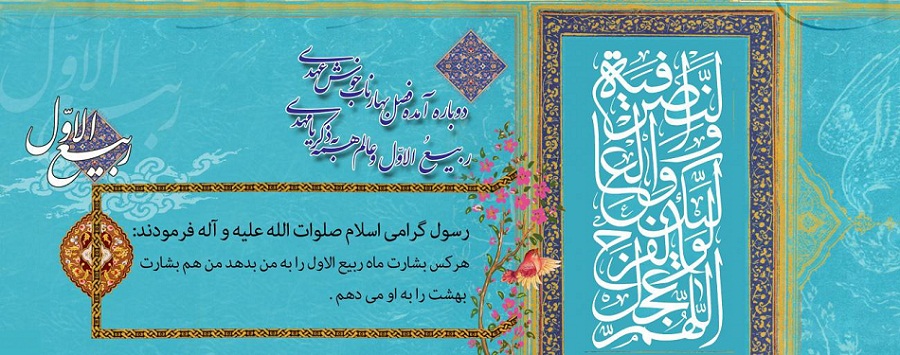 اللهم عجل لولیک الفرج
والعافیة والنصر
دوباره آمده فصل بهار ناب خوش عهدی
ربیعُ الاوّل و عالم همه به ذکر یا مهدی
ربیع الاوّل
رسول گرامی اسلام صلوات الله علیه و آله فرمودند:
هرکس بشارت ماه ربیع الاول را به من بدهد من هم بشارت
بهشت را به او می دهم .